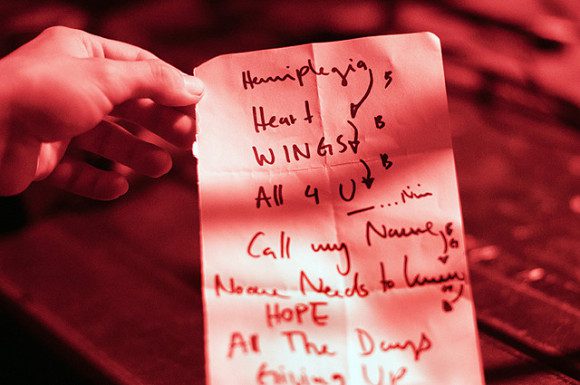 Hemiplegia
Heart
WINGS
All 4 U
Call my Name
Noone Needs to know
HOPE
All The Days
Giving UP